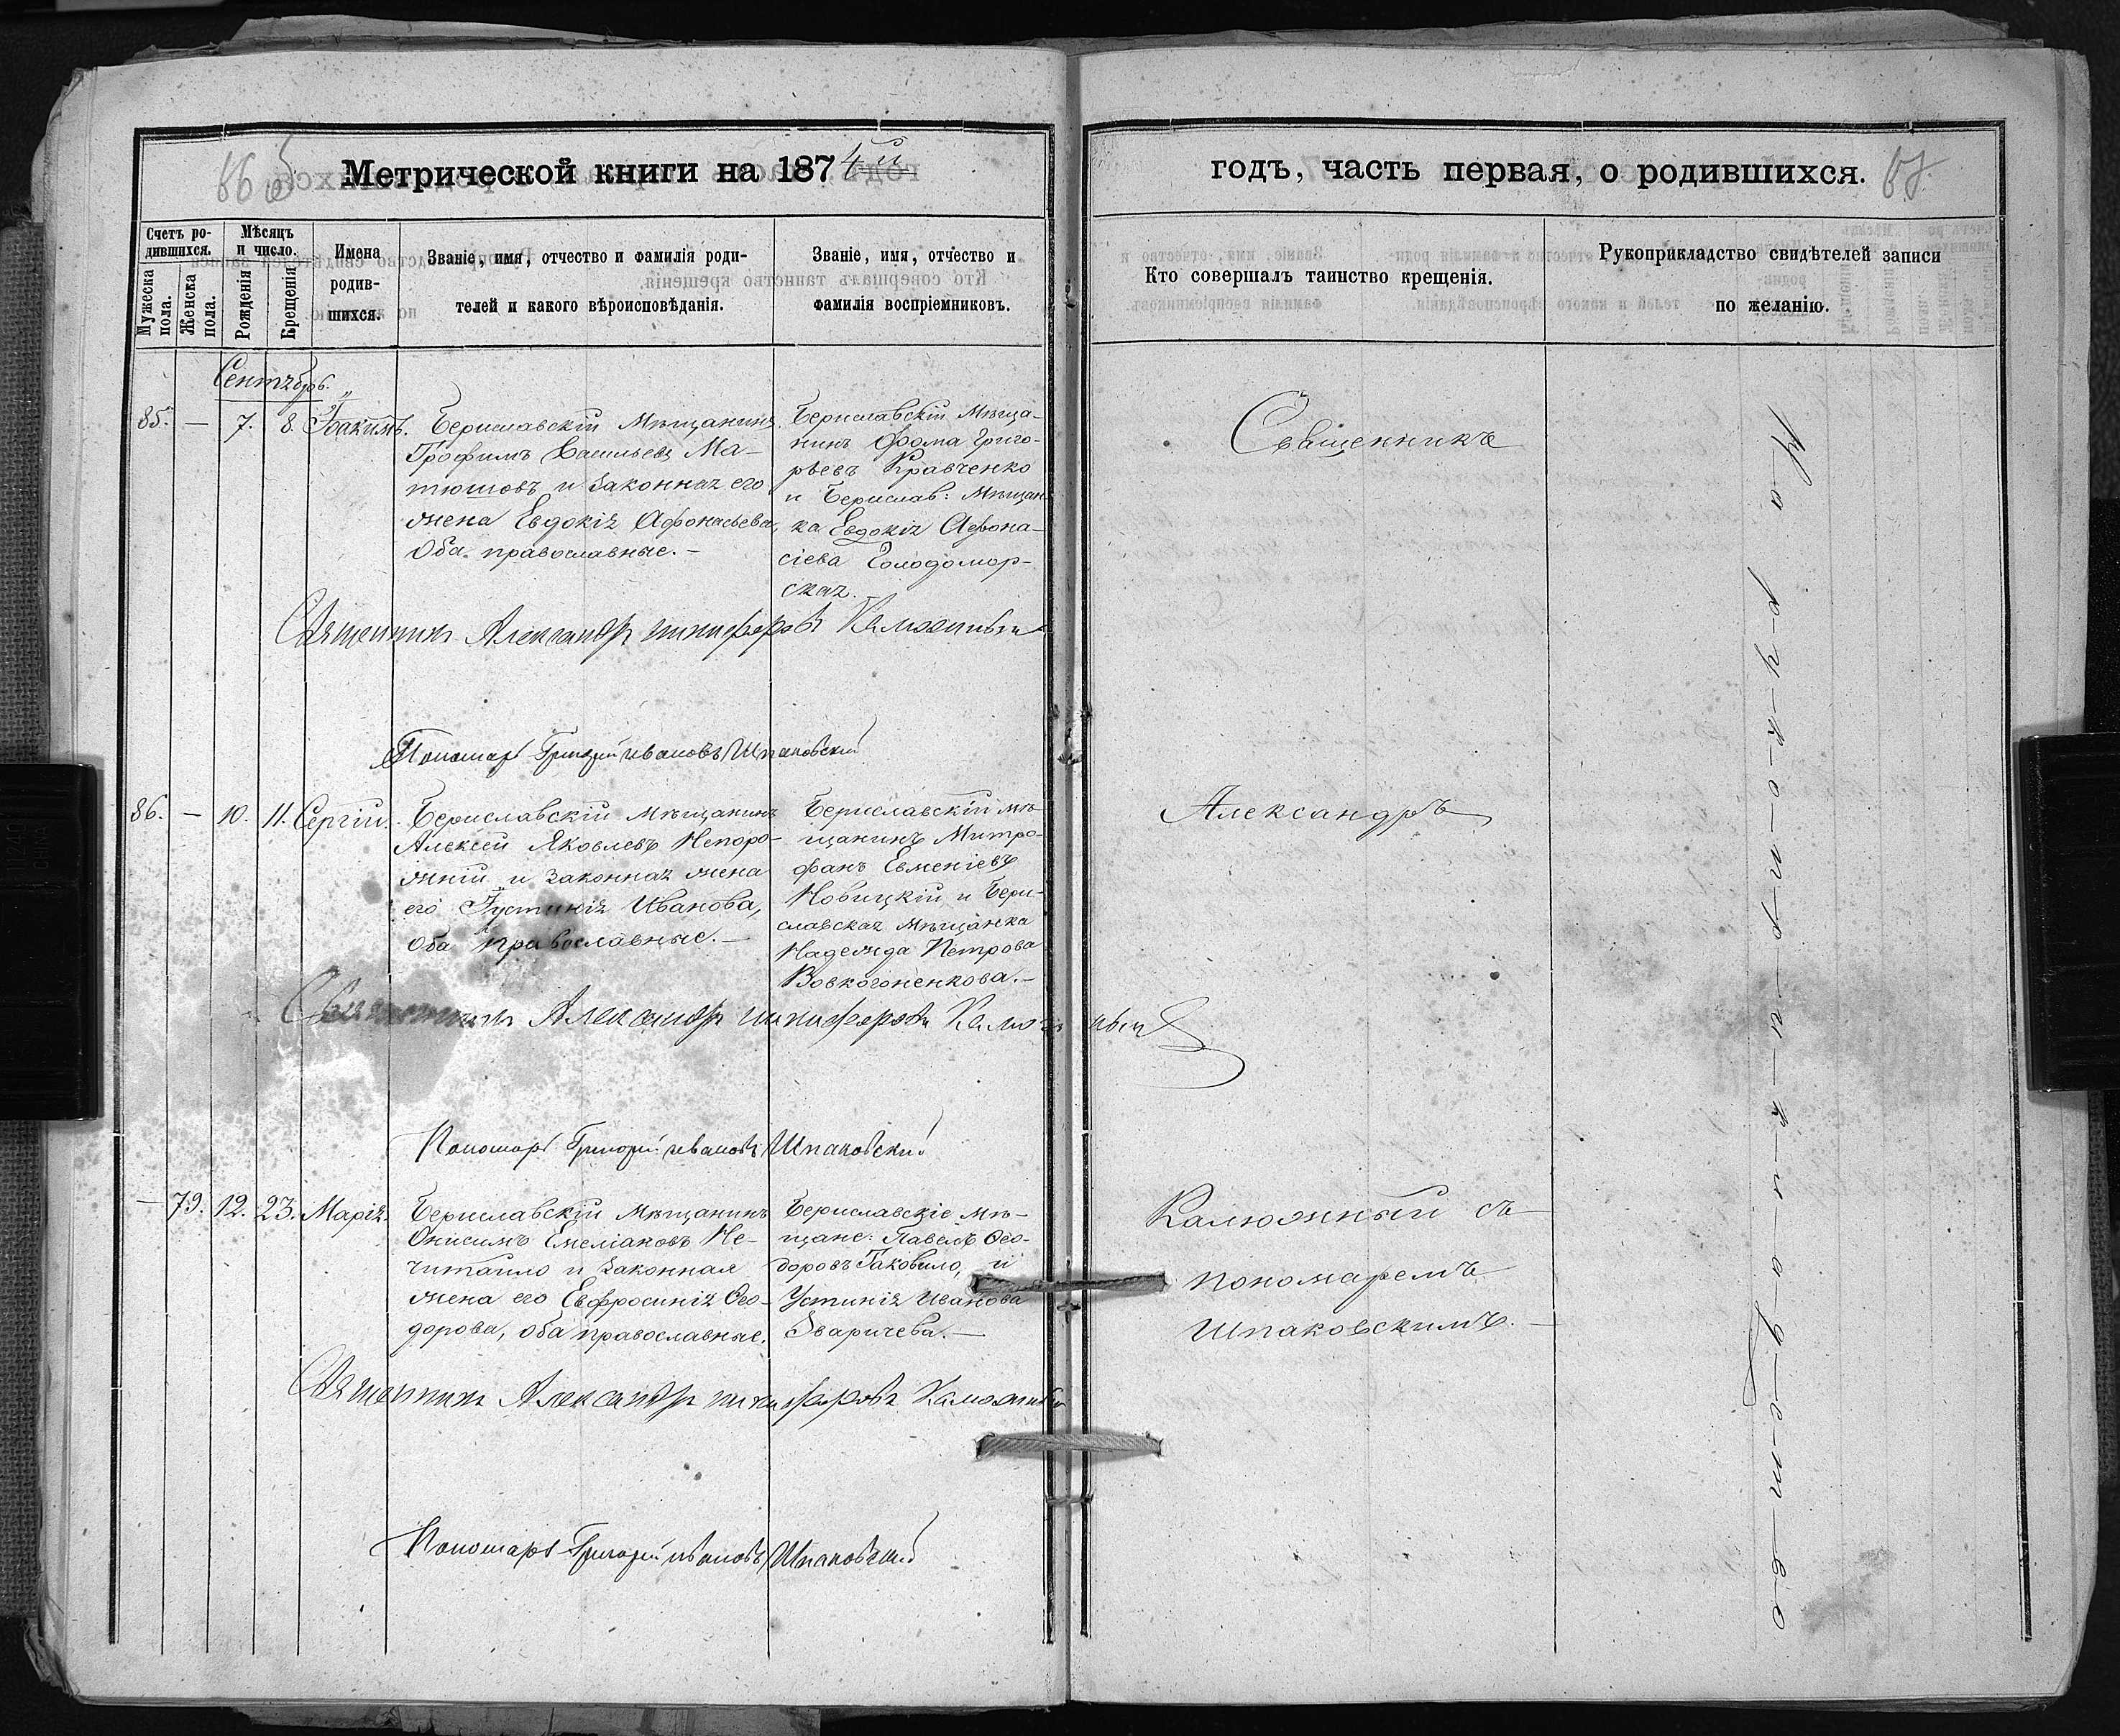 Метрической книги на 1874й
годъ, часть первая, о родившихся.
Счетъ родившихся.
Мужеска пола.
Женска пола.
Мѣсяцъ и число.
Рожденія
Крещенія
Имена родившихся.
Званіе, имя, отчество и фамилія роди-
телей и какого вѣроисповѣданія.
Званіе, имя, отчество и
фамилія воспріемниковъ.
Кто совершалъ таинство крещенія.
Рукоприкладство свидѣтелей записи
по желанію.
Сентябрь.
85. — 7. 8. Іоакимъ.
Бериславскій Мѣщанинъ
Трофимъ Васильевъ Ма-
тюшовъ и законная его
жена Евдокія Афонасьева,
оба православные. —
Бериславскій Мѣща-
нинъ Фома Григо-
рьевъ Кравченко
и Берислав: Мѣщан-
ка Евдокія Афона-
сіева Голодомор-
ская.
Священникъ Александръ Никифоровъ Калюжный
Пономарь Григорій Ивановъ Шпаковскій
86. — 10. 11. Сергій.
Бериславскій мѣщанинъ
Алексѣй Яковлевъ Непоро-
жній и законная жена
его Іустинія Иванова,
оба православные. —
Бериславскій мѣ-
щанинъ Митро-
фанъ Евменіевъ
Новицкій и Бери-
славская мѣщанка
Надежда Петрова
Вовкогоненкова. —
Священникъ Александръ Никифоровъ Калюжный
Пономарь Григорій Ивановъ Шпаковскій
— 79. 12. 23. Марія.
Бериславскій Мѣщанинъ
Онисимъ Емеліановъ Не-
читайло и законная
жена его Евфросинія Ѳео-
дорова, оба православные.
Бериславскіе мѣ-
щане: Павелъ Ѳео-
доровъ Гаковило, и
Устинія Иванова
Зваричева. —
Священникъ Александръ Никифоровъ Калюжный
Пономарь Григорій Ивановъ Шпаковскій
Священникъ
Александръ
Калюжный съ
пономаремъ
Шпаковскимъ. —